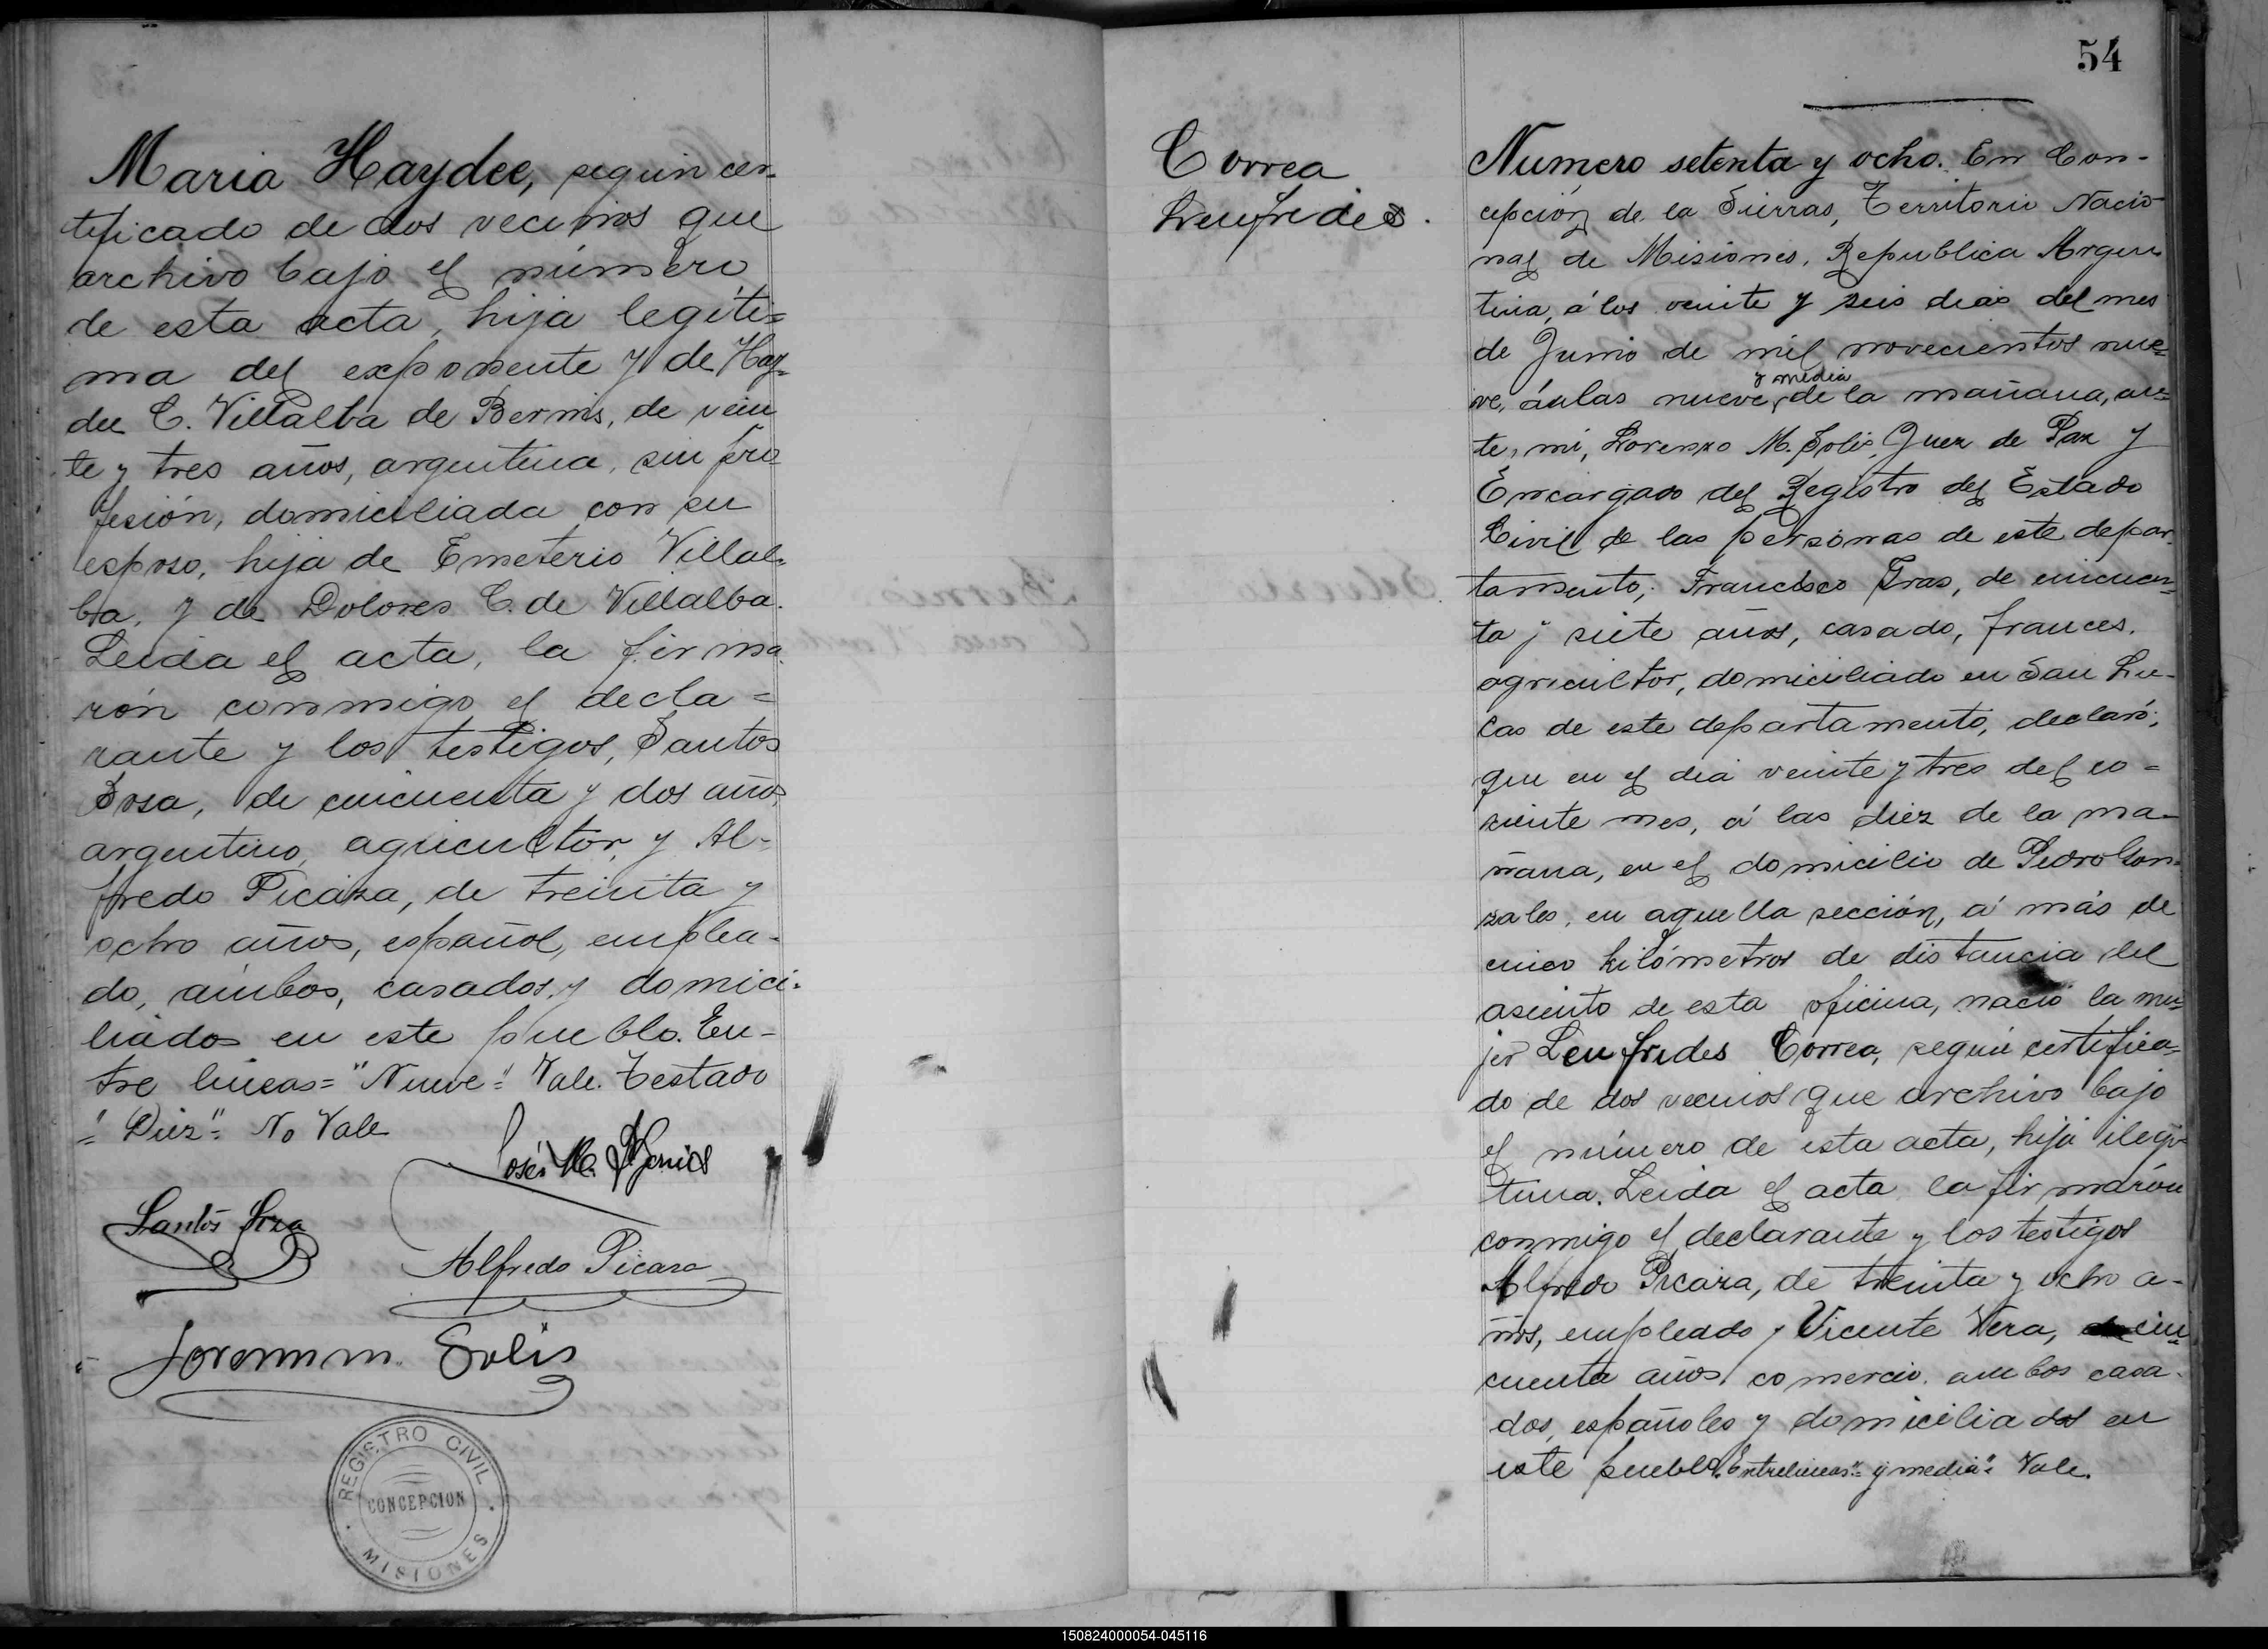 Maria Haydee, según cer-
tificado de dos vecinos que
archivo bajo el número
de esta acta, hija legíti=
ma del exponente y de Hay=
dee C. Villalba de Bernis, de vein
te y tres años, argentina, sin pro-
fesión, domiciliada con su
esposo, hija de Emeterio Villal-
ba, y de Dolores C. de Villalba.
Leida el acta, la firma-
rón conmigo el decla=
rante y los testigos, Santos
Sosa, de cincuenta y dos años,
argentino, agricultor, y Al-
fredo Picaza, de treinta y
ocho años, español, emplea-
do, ámbos, casados, y domici-
liados en este pueblo. En-
tre lineas="Nueve" Vale. Testado
="Diez"= No Vale
José M. Bernis
Santos Soza
Alfredo Picaza
Lorenzo M. Solis
REGISTRO CIVIL
CONCEPCION
MISIONES
54
Correa
Leufrides.
Numero setenta y ocho. En Con-
cepción de la Sierras, Territorio Nacio-
nal de Misiones, Republica Argen
tina, á los veinte y seis dias del mes
de Junio de mil novecientos nue=
y media
ve, á las nueve, de la mañana, an=
te, mi, Lorenzo M. Solis, Juez de Paz y
Encargado del Registro del Estado
Civil de las personas de este depar-
tamento; Francisco Gras, de cincuen=
ta y siete años, casado, frances,
agricultor, domiciliado en San Lu-
cas de este departamento, declaró;
que en el dia veinte y tres del co=
rriente mes, á las diez de la ma-
ñana, en el domicilio de Pedro Gon-
zales, en aquella sección, á más de
cinco kilómetros de distancia del
asiento de esta oficina, nació la mu=
jer Leufrides Correa, según certifica=
do de dos vecinos que archivo bajo
el número de esta acta, hija ilegi-
tima. Leida el acta, la firmarón
conmigo el declarante y los testigos
Alfredo Picaza, de treinta y ocho a-
ños, empleado y Vicente Vera, cin=
cuenta años, comercio, ambos casa-
dos, españoles y domiciliados en
este pueblo. Entrelineas"= y media"= Vale.
150824000054-045116